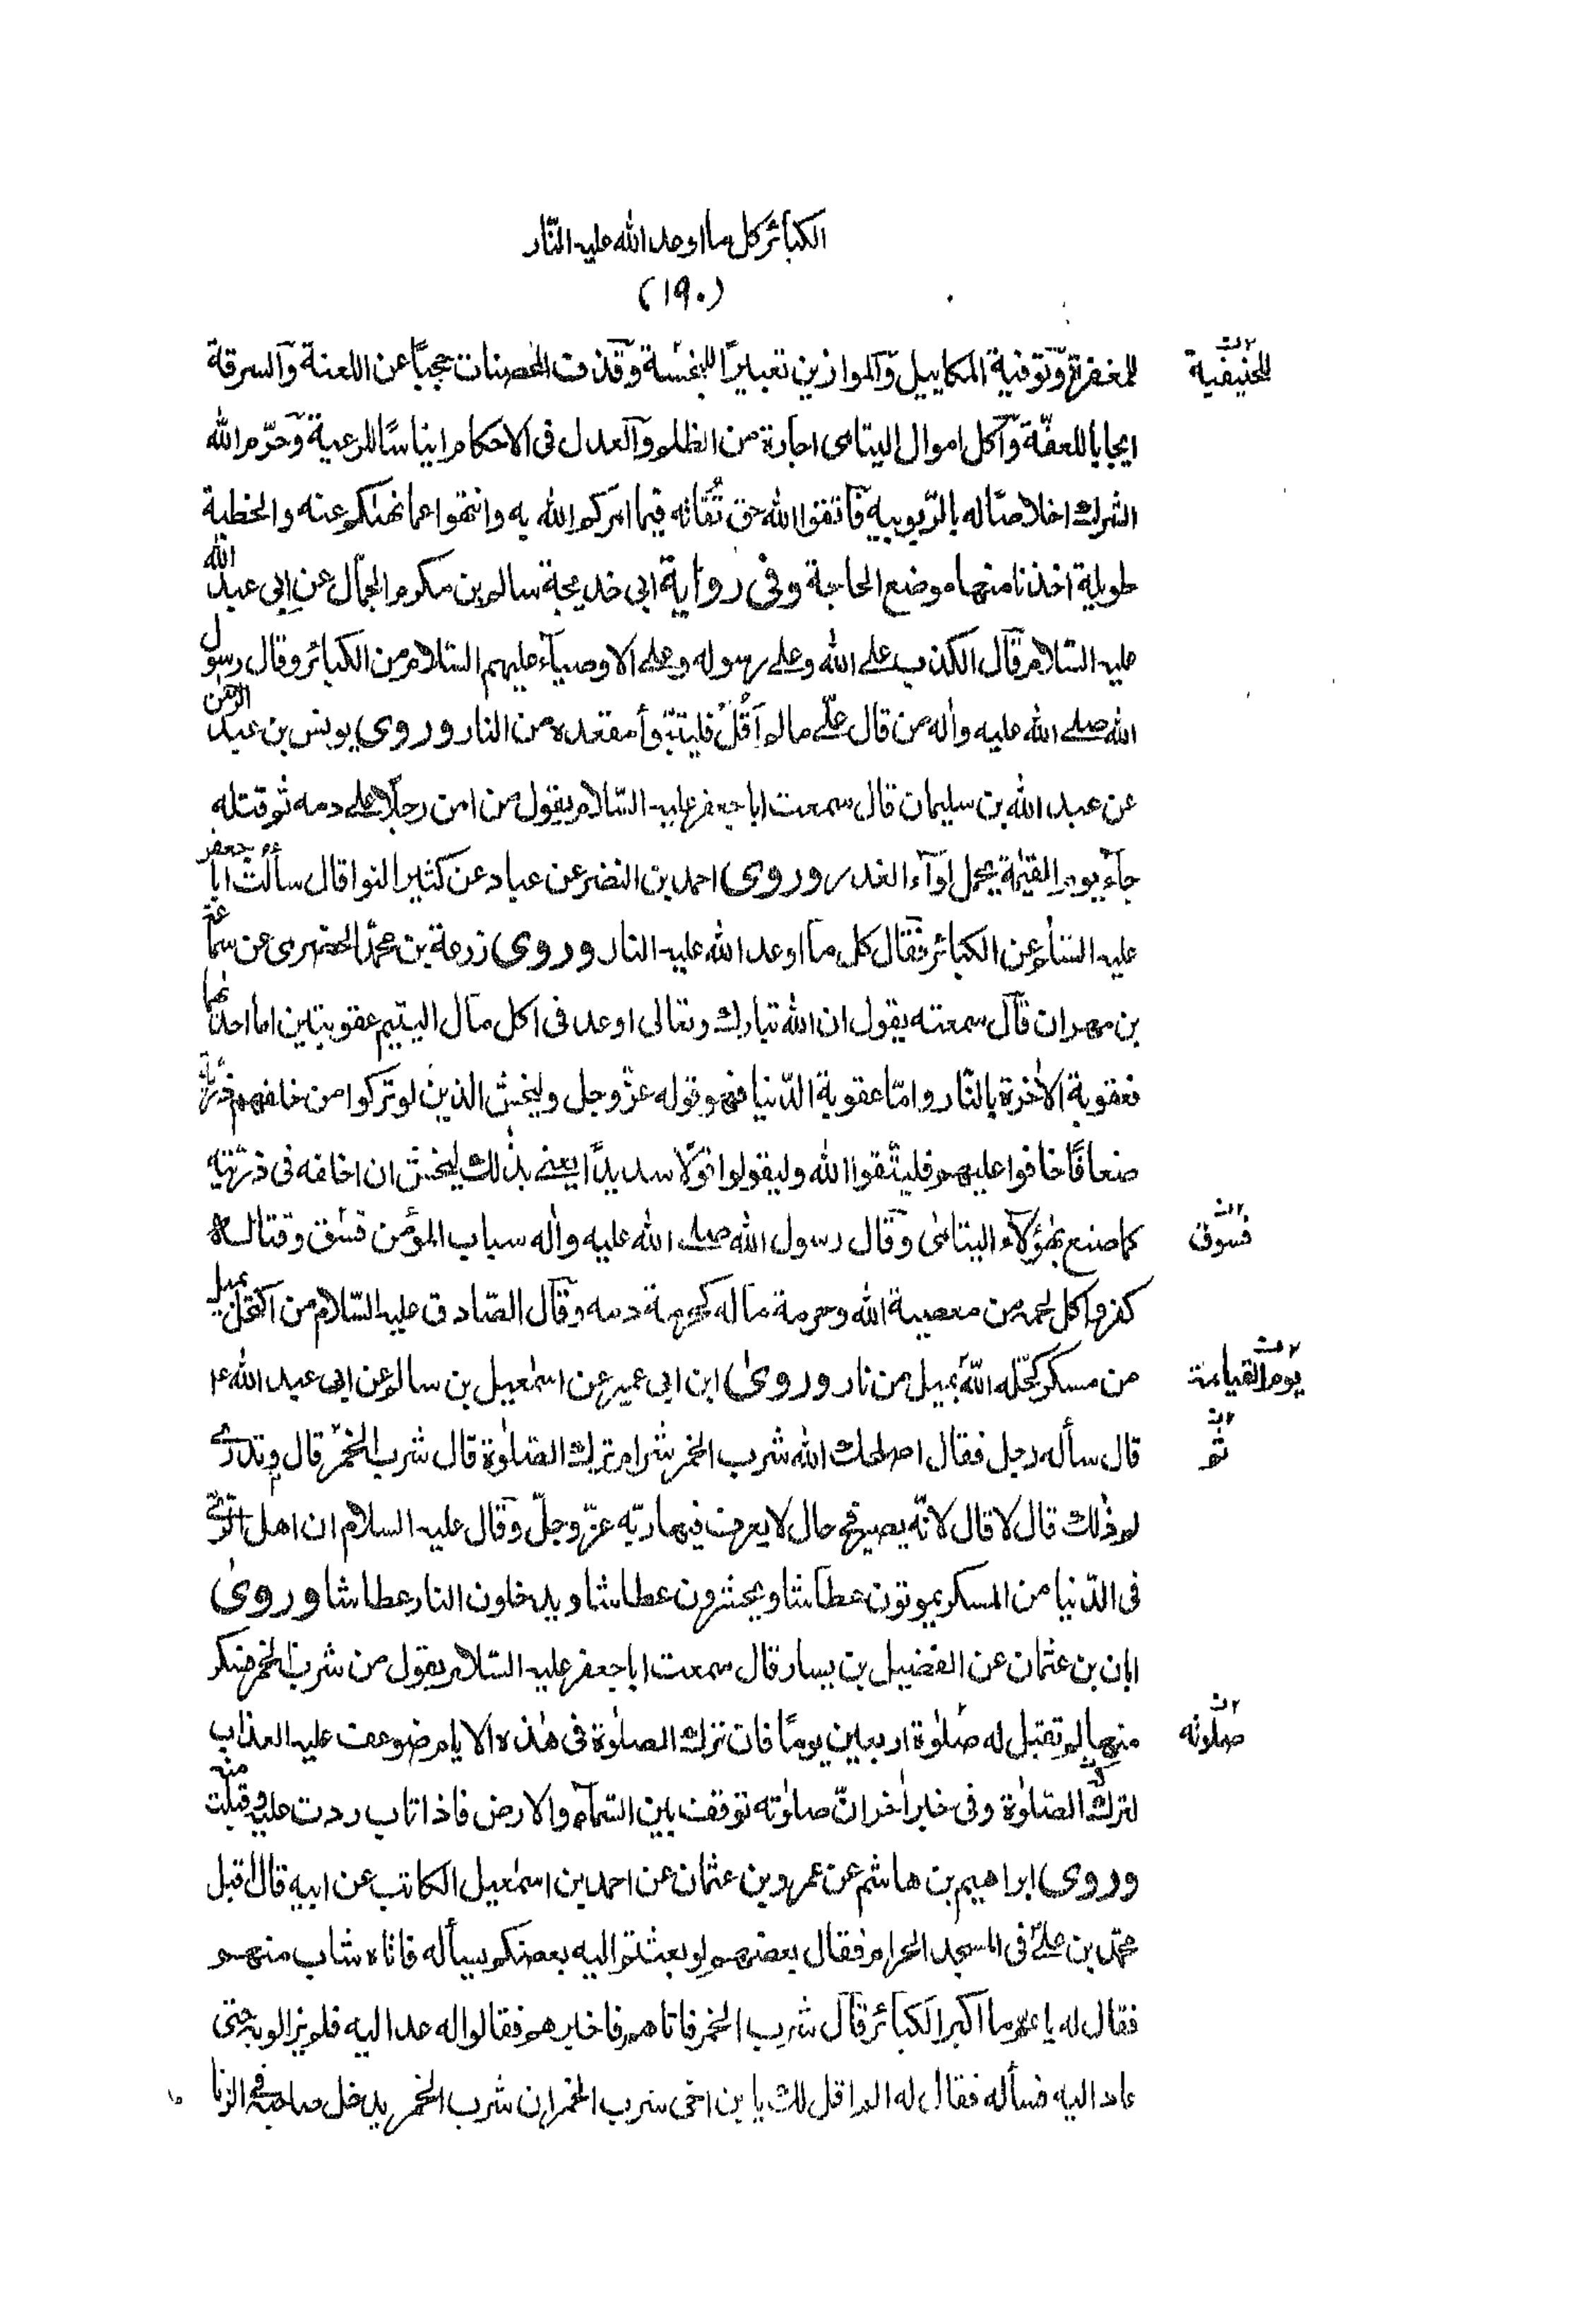 الكبائر كل ما اوعد الله عليه النّار
(١٩٠)
للمغفرة وتوفية المكاييل والموازين تعييرًا للبخسة وقذف المحصنات حجبًا عن اللعنة والسرقة
ايجابا للعفّة وآكل اموال اليتامى اجارة من الظلم والعدل فى الاحكام ايناسًا للرعية وحرّم الله
الشرك اخلاصًا له بالرّبوبية فاتقوا الله حق تُقاته فيما امركم الله به وانتهوا عما نهىكم عنه والخطبة
طويلة اخذنا منها موضع الحاجة وفى رواية ابى خديجة سالم بن مكرم الجمّال عن ابى عبد الله
عليه السّلام قال الكذب على الله وعلى رسوله وعلى الاوصياء عليهم السّلام من الكبائر وقال رسول
الله صلى الله عليه واٰله من قال علىّ مالم اَقُلْ فليتبوّأ مقعده من النار وروى يونس بن عبد الرحمٰن
عن عبد الله بن سليمان قال سمعت ابا جعفر عليه السّلام يقول من امن رجلًا على دمه ثم قتله
جآء يوم القيٰمة يحمل لوآء الغدر وروى احمد بن النضر عن عباد عن كثير النوا قال سألت ابا جعفر
عليه السّلام عن الكبائر فقال كل ما اوعد الله عليه النار وروى زرعة بن محمّد الحضرمى عن سماعة
بن مهران قال سمعته يقول ان الله تبارك وتعالى اوعد فى اكل مال اليتيم عقوبتين اما احدٰهما
فعقوبة الاٰخرة بالنّار وامّا عقوبة الدّنيا فهو قوله عزّ وجل وليخش الذين لو تركوا من خلفهم ذرّيّة
ضعافًا خافوا عليهم فليتّقوا الله وليقولوا قولًا سديدًا يعنى بذٰلك ليخش ان اخلفه فى ذرّيّته
كما صنع بهٰؤلاء اليتامىٰ وقال رسول الله صلى الله عليه واٰله سباب المؤمن فسق وقتاله
كفر واكل لحمه من معصية الله وحرمة ماله كحرمة دمه وقال الصّادق عليه السّلام من اكتحل بميل
من مسكر كحّله الله بميل من نار وروىٰ ابن ابى عمير عن اسمٰعيل بن سالم عن ابى عبد الله ع
قال سأله رجل فقال اصلحك الله شرب الخمر شرّ ام ترك الصّلوٰة قال شرب الخمر قال وتدرى
لم ذٰلك قال لا قال لانّه يصير فى حال لا يعرف فيها ربّه عزّ وجلّ وقال عليه السلام ان اهل الرّى
فى الدّنيا من المسكر يموتون عطاشا ويحشرون عطاشا ويدخلون النار عطاشا وروىٰ
ابان بن عثمان عن الفضيل بن يسار قال سمعت ابا جعفر عليه السّلام يقول من شرب الخمر فسكر
منها لم تقبل له صلوٰة اربعين يومًا فان ترك الصلوٰة فى هٰذه الايام ضوعف عليه العذاب
لترك الصّلوٰة وفى خبر اٰخر انّ صلوٰته توقف بين السّمآء والارض فاذا تاب ردت عليه وقبلت منه
وروى ابراهيم بن هاشم عن عمرو بن عثمان عن احمد بن اسمٰعيل الكاتب عن ابيه قال اقبل
محمّد بن علىّ فى المسجد الحرام فقال بعضهم لو بعثتم اليه بعضكم يسأله فاتاه شاب منهم
فقال له يا عم ما اكبر الكبآئر قال شرب الخمر فاتاهم فاخبرهم فقالوا له عد اليه فلم يزالوا به حتى
عاد اليه فسأله فقال له الم اقل لك يا بن اخى شرب الخمر ان شرب الخمر يدخل صاحبه فى الزنا
للحنيفية
فسوق
يوم القيامة
ثم
صلوته